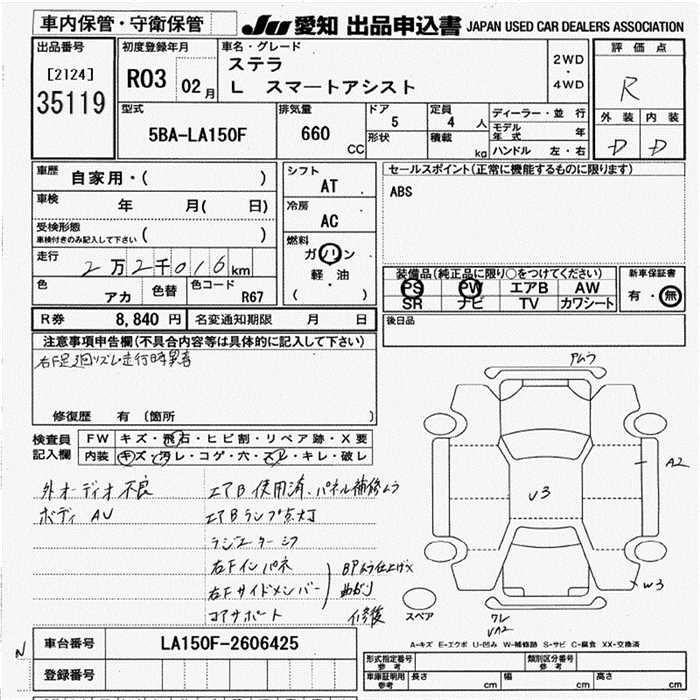 車内保管・守衛保管
JU 愛知 出品申込書 JAPAN USED CAR DEALERS ASSOCIATION
出品番号
[2124]
35119
初度登録年月
R03 02月
車名・グレード
ステラ
L スマートアシスト
2WD
・
4WD
評価点
R
外装 内装
D D
型式
5BA-LA150F
排気量
660 CC
ドア
5
形状
定員
4 人
積載
kg
ディーラー・並行
モデル年式 年
ハンドル 左・右
車歴
自家用・( )
車検
年 月( 日)
受検形態
車検付きのみ記入して下さい ( )
走行
2万2千016km
色
アカ
色替
色コード
R67
シフト
AT
冷房
AC
燃料
ガソリン
軽・油
( )
セールスポイント(正常に機能するものに限ります)
ABS
装備品(純正品に限り○をつけてください)
PS PW エアB AW
SR ナビ TV カワシート
新車保証書
有・無
後日品
R券 8,840円 名変通知期限 月 日
注意事項申告欄(不具合内容等は具体的に記入して下さい)
右F足廻リズレ走行時異音
修復歴 有 〔箇所 〕
検査員記入欄
FW キズ・飛石・ヒビ割・リペア跡・X要
内装 キズ・汚レ・コゲ・穴・スレ・キレ・破レ
外オーディオ不良
ボディ AU
エアB 使用済、パネル補修ムラ
エアBランプ点灯
ラジエーター
右Fインパネ
右Fサイドメンバー
コアサポート
曲がり
修復
アムラ
U3
A2
W3
ワレ
スペア
A-キズ E-エクボ U-凹み W-補修跡 S-サビ C-腐食 XX-交換済
N
車台番号 LA150F-2606425
登録番号
型式指定番号
参考
類別区分番号
参考
車庫証明用
参考
長さ cm 幅 cm 高さ cm